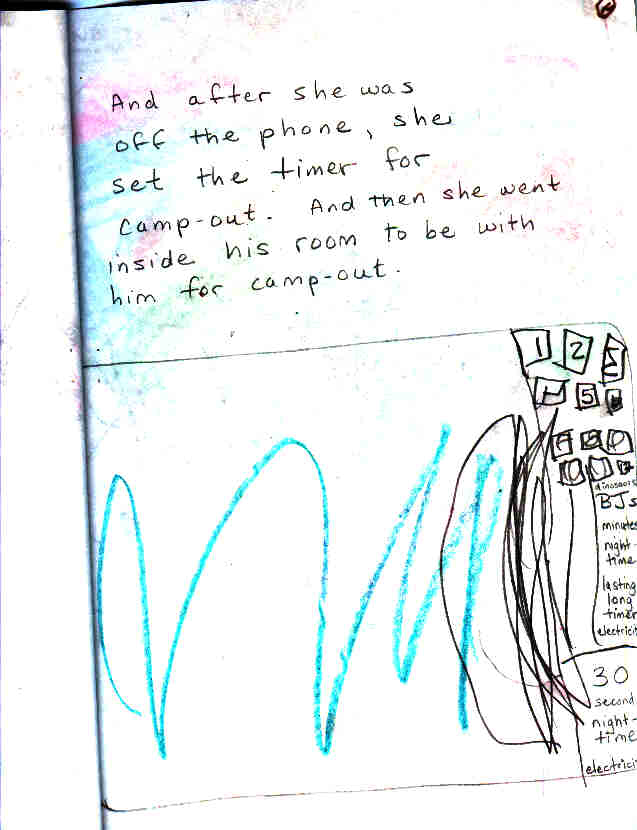 6
And after she was
off the phone, she
set the timer for
camp-out. And then she went
inside his room to be with
him for camp-out.
1 2
5
dinosaurs
BJs
minutes
night-
time
lasting
long
timer
electricit
30
second
night-
time
electricit